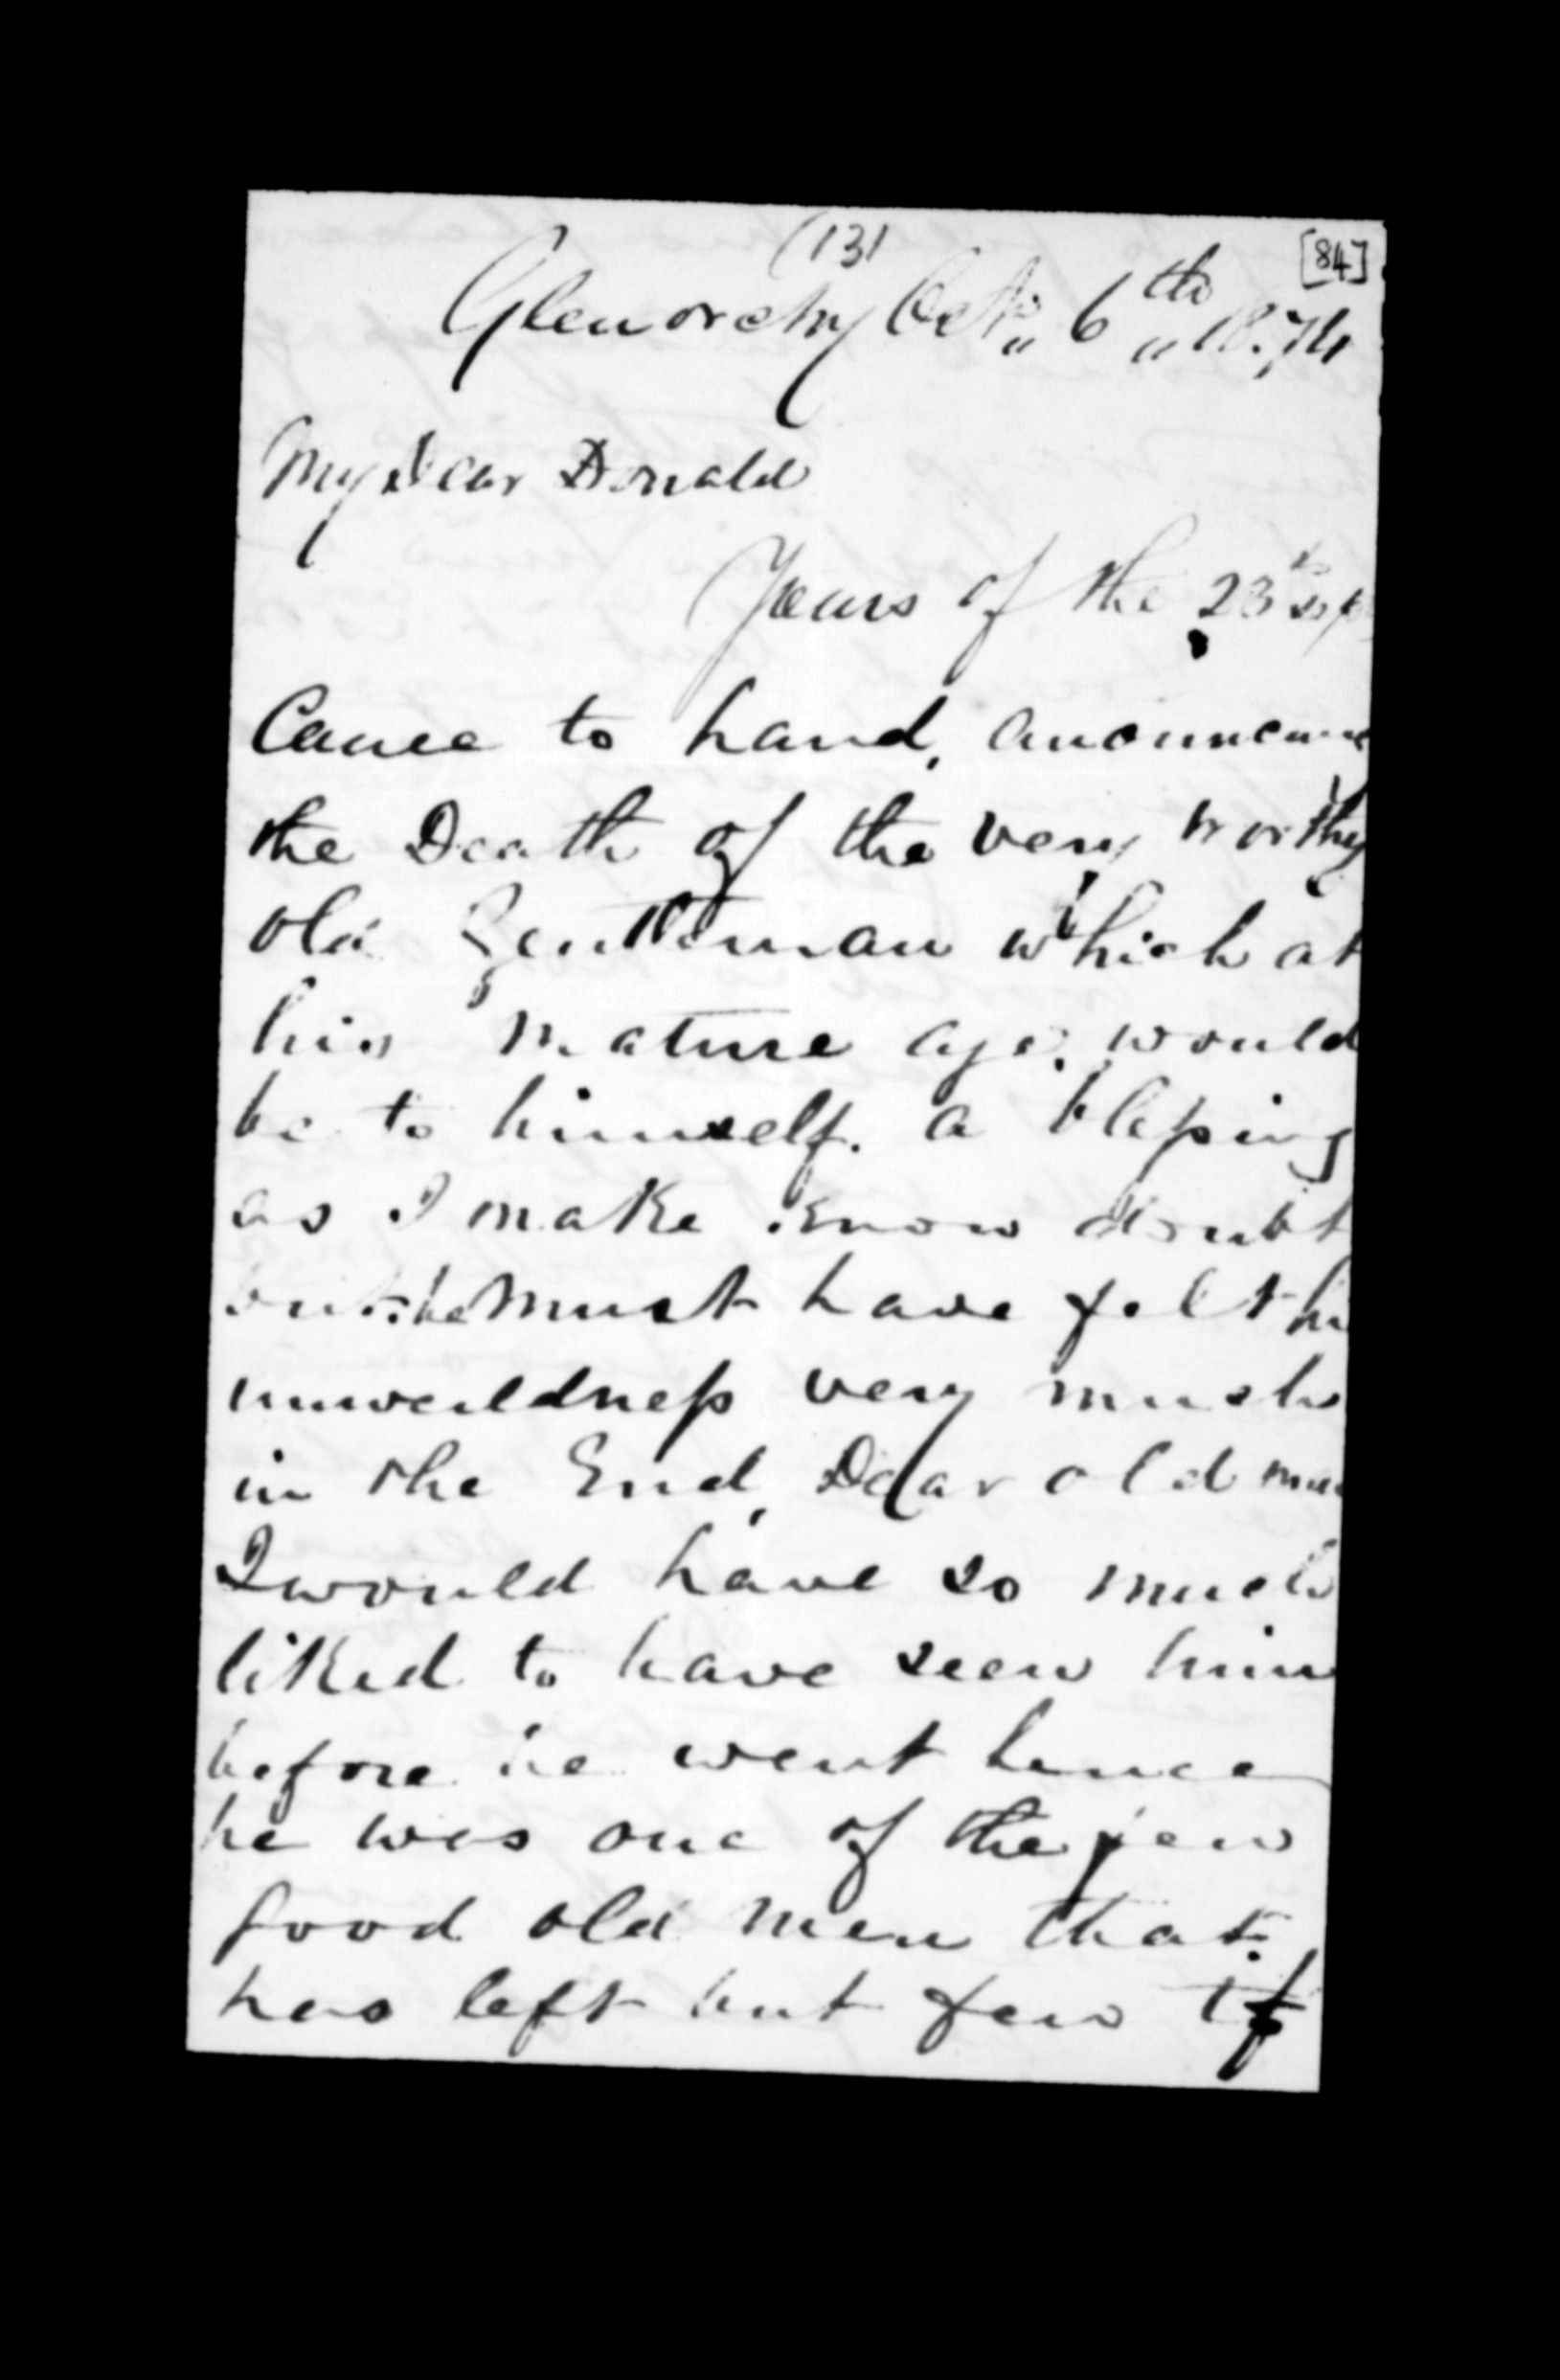 (131
[84]
Glenorchy Oct " 6th " 18.74
My Dear Donald
Yours of the 23d Sep
Came to hand, anouncing
the Death of the very worthy
old Gentleman which at
his mature age, would
be to himself. a blessing
as I make know doubt
but he must have felt his
unweildness very much
in the End, Dear old man
I would have so much
liked to have seen him
before he went hence
he was one of the few
good old men that
has left but few